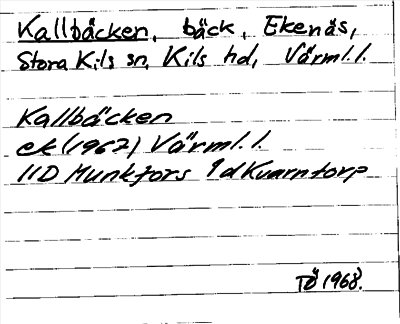 Kallbäcken, bäck, Ekenäs,
Stora Kils sn, Kils hd, Värml. l.
Kallbäcken
ek (1967) Värml. l.
11D Munkfors 9d Kvarntorp
TÖ 1968.